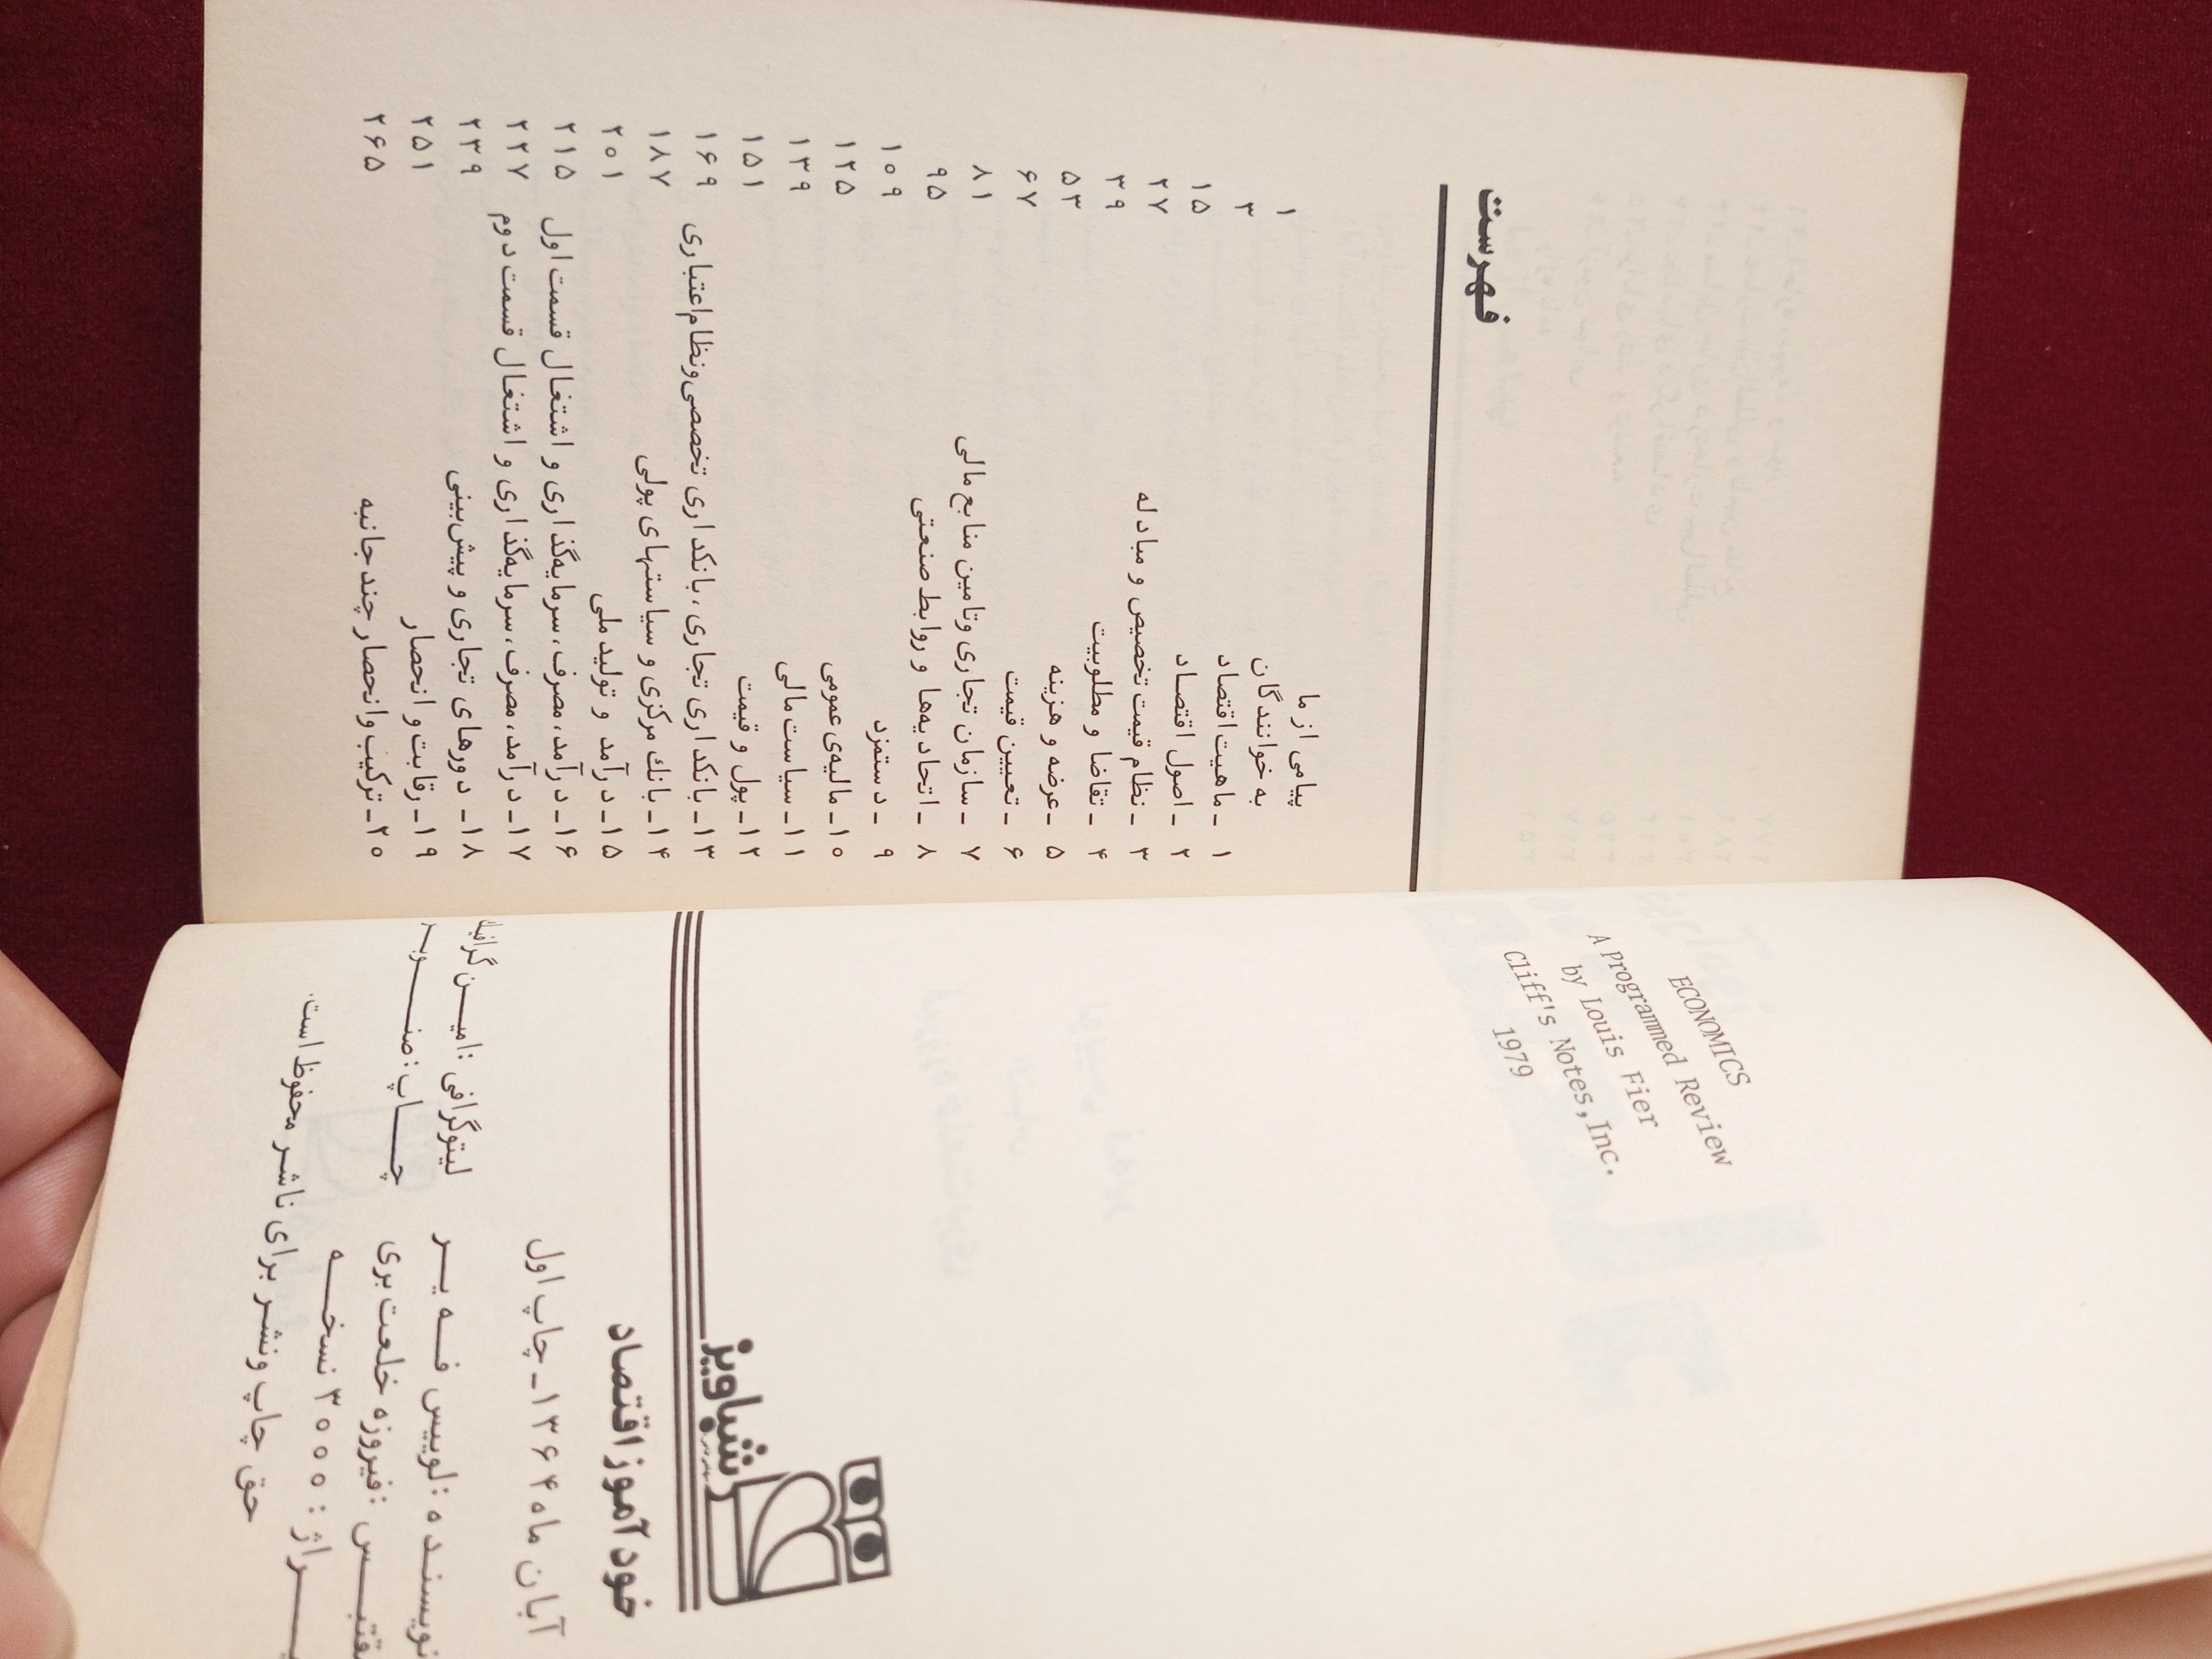 ECONOMICS
A programmed Review
by Louis Fier
Cliff's Notes, Inc.
1979
شباویز
خودآموز اقتصاد
آبان ماه ۱۳۶۴ ـ چاپ اول
نویسنده : لوییس فه یر
لیتوگرافی : امین گرافیک
مقتبس : فیروزه خلعت بری
چاپ : صنوبر
تیراژ : ۳۰۰۰ نسخه
حق چاپ ونشر برای ناشر محفوظ است.
فهرست
پیامی از ما ۱
به خوانندگان ۳
۱ ـ ماهیت اقتصاد ۱۵
۲ ـ اصول اقتصاد ۲۷
۳ ـ نظام قیمت تخصیص و مبادله ۳۹
۴ ـ تقاضا و مطلوبیت ۵۳
۵ ـ عرضه و هزینه ۶۷
۶ ـ تعیین قیمت ۸۱
۷ ـ سازمان تجاری وتامین منابع مالی ۹۵
۸ ـ اتحادیه‌ها و روابط صنعتی ۱۰۹
۹ ـ دستمزد ۱۲۵
۱۰ـ مالیه‌ی عمومی ۱۳۹
۱۱ـ سیاست مالی ۱۵۱
۱۲ـ پول و قیمت ۱۶۹
۱۳ـ بانکداری تجاری، بانکداری تخصصی ونظام اعتباری ۱۸۷
۱۴ـ بانک مرکزی و سیاستهای پولی ۲۰۱
۱۵ـ درآمد و تولید ملی ۲۱۵
۱۶ـ درآمد، مصرف، سرمایه‌گذاری و اشتغال قسمت اول ۲۲۷
۱۷ـ درآمد، مصرف، سرمایه‌گذاری و اشتغال قسمت دوم ۲۳۹
۱۸ـ دورهای تجاری و پیش‌بینی ۲۵۱
۱۹ـ رقابت و انحصار ۲۶۵
۲۰ـ ترکیب وانحصار چند جانبه